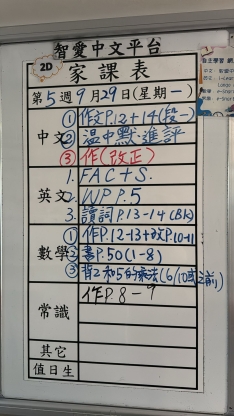 智愛中文平台
2D
家課表
第5週9月29日(星期一)
中文
①作文P.12+14(段一)
②温中默進評
③作(改正)
英文
1. FAC + S.
2. WP P.5
3. 讀詞P.13-14(Bk)
數學
①作P.12-13+改P.10-11
②書P.50(1-8)
③背2和5的乘法(6/10或之前)
常識
作P.8-9
其它
值日生